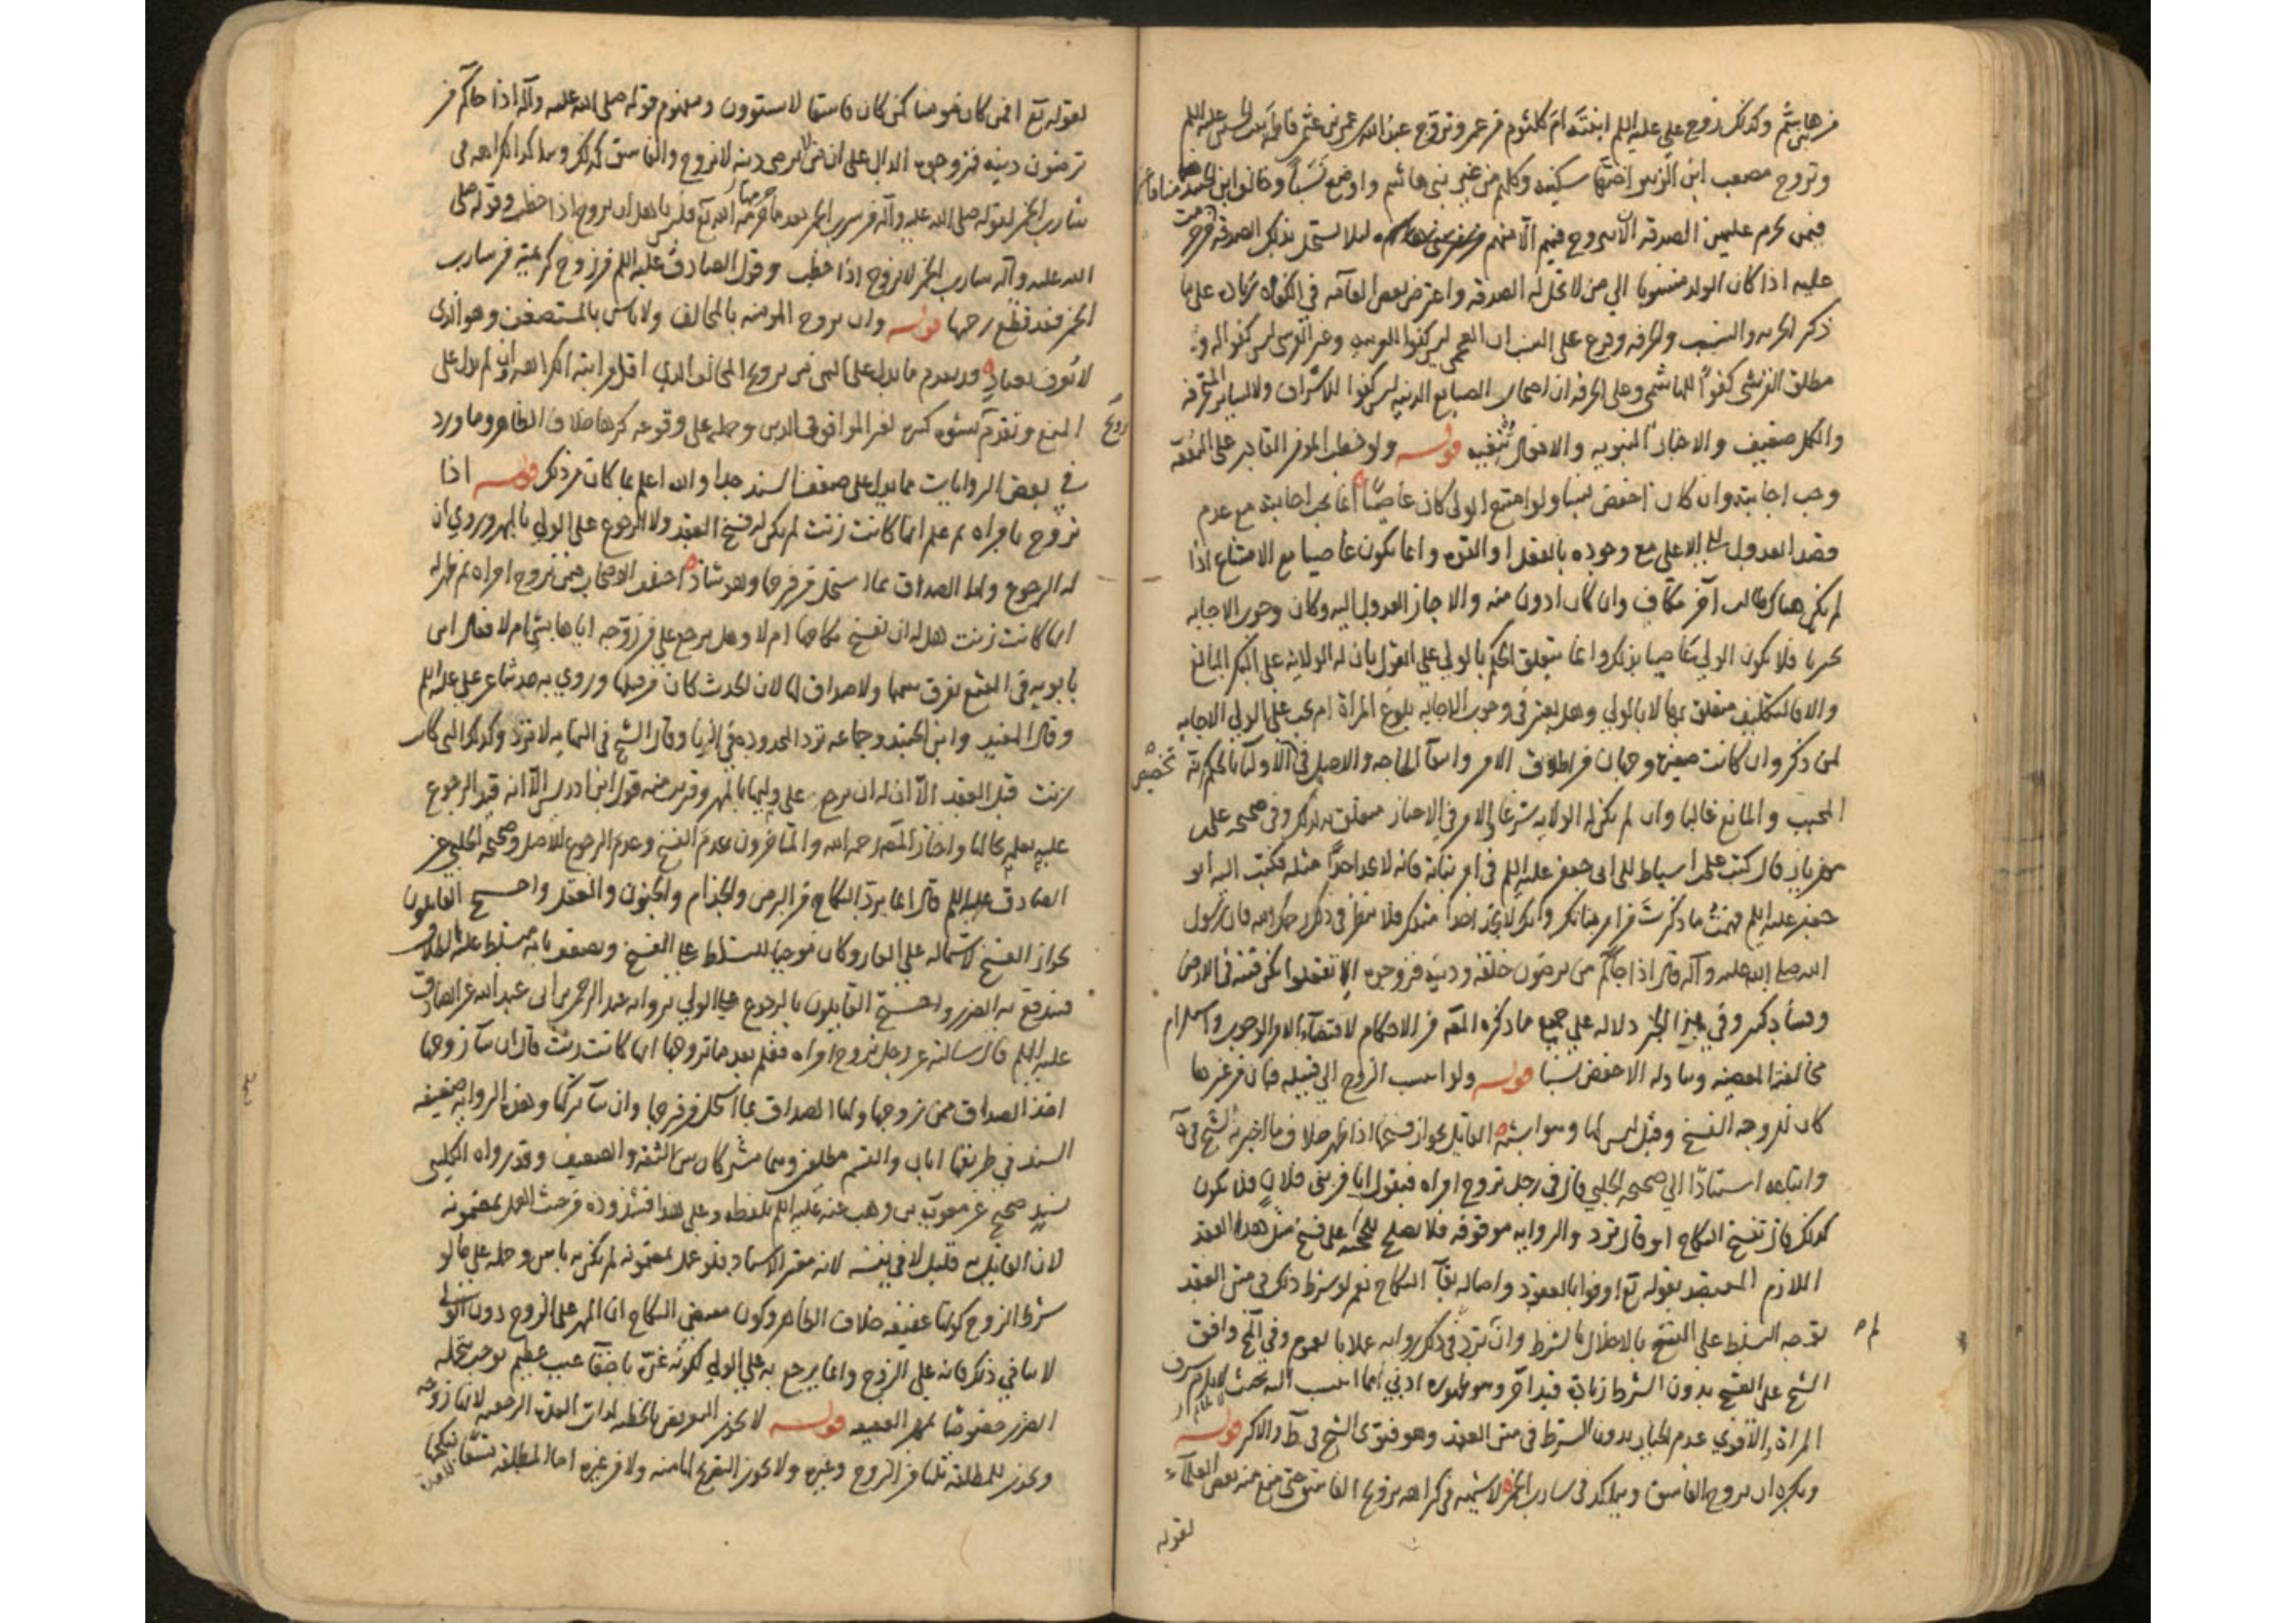 من هاشم وكذلك زوج علي عليه السلم ابنته ام كلثوم من عمر وتزوج عبد الله بن عمرو بن عثمن فاطمة بنت الحسين عليه السلم
وتزوج مصعب ابن الزبير اختها سكينه وكلهم من غير بني هاشم واوضع نسبا وخالف ابن الجنيد منا
فيمن يحرم عليهن الصدقه الا يتزوج فيهم الا منهم لئلا يستحل بذلك الصدقه من حرمت
عليه اذا كان الولد منسوبا الي من لا تحل له الصدقه واعتبر بعض العامه في الكفاه زياده علي ما
ذكر الحريه والنسب والحرفه وفرع على النسب ان العجمي ليس كفوا للعربيه وغير القرشي ليس كفوا له ولا
مطلق القرشي كفوا للهاشمي وعلى الحرفه ان اصحاب الصنايع الدنيه ليس كفوا للاشراف ولا لسائر المحترفه
والكل ضعيف والاخبار النبويه والافعال تنفيه قوله ولو خطب المؤمن القادر على النفقه
وجب اجابته وان كان اخفض نسبا ولو امتنع الولي كان عاصيا انما يجب اجابته مع عدم
قصد العدول الى الاعلى مع وجوده بالفعل او القوه وانما يكون عاصيا مع الامتناع اذا
لم يكن هناك طالب آخر مكاف وان كان ادون منه والا جاز العدول اليه وكان وجوب الاجابه
تخييريا فلا يكون الولي عاصيا بذلك وانما يتعلق الحكم بالولي علي القول بان له الولايه على البكر البالغ
والا فالتكليف متعلق بها لا بالولي وهل يعتبر في وجوب الاجابه بلوغ المراة ام يجب علي الولي الاجابه
لمن ذكر وان كانت صغيره وجهان من اطلاق الامر وانتفا الحاجه والاصل في الاولياء بالحكم
المجيب والمانع غالبا وان لم يكن له الولايه شرعا والامر في الاخبار متعلق بذلك وفي صحيحه علي بن
مهزيار قال كتب علي بن اسباط الى ابي جعفر عليه السلم في امر بناته فانه لا يجد احدا مثله فكتب اليه ابو
جعفر عليه السلم فهمت ما ذكرت من امر بناتك وانك لا تجد احدا مثلك فلا تنظر في ذلك رحمك الله فان رسول
الله صلى الله عليه وآله قال اذا جاءكم من ترضون خلقه ودينه فزوجوه الا تفعلوا تكن فتنة في الارض
وفساد كبير وفي هذا الخبر دلاله علي جميع ما ذكره المصنف من الاحكام لاقتضاء الامر الوجوب واستلزام
مخالفته المعصيه وتناوله الاخفض نسبا قوله ولو انتسب الزوج الي قبيله فبان من غيرها
كان للزوجه الفسخ وقيل ليس لها وهو اشبه القايل بجواز فسخها اذا ظهر خلاف ما اخبر به الشيخ في
واتباعه استنادا الي صحيحه الحلبي قال في رجل تزوج امراه فيقول انا من بني فلان فلا يكون
كذلك قال تفسخ النكاح او قال ترد والروايه موقوفه فلا يصلح للحجه على فسخ مثل هذا العقد
اللازم المعتضد بقوله تع اوفوا بالعقود واصاله بقآ النكاح نعم لو شرط ذلك في متن العقد
توجه التسلط على الفسخ بالاخلال بالشرط وان لم ترد في ذلك روايه عملا بالعموم وفي المخ وافق
الشيخ على الفسخ بدون الشرط بزيادة قيد آخر وهو ظهوره ادني مما انتسب اليه بحيث لا يلايم شرف
المراة والاقوي عدم الخيار بدون الشرط في متن العقد وهو فتوى الشيخ في ط والاكثر قوله
ويكره ان يزوج الفاسق ويتاكد في شارب الخمر لا شبهه في كراهه تزويج الفاسق حتى منع منه بعض العلماء
لقوله
لقوله تع افمن كان مومنا كمن كان فاسقا لا يستوون ومفهوم قوله صلى الله عليه وآله اذا جاكم من
ترضون دينه فزوجوه الدال على ان من لا يرضى دينه لا يزوج والفاسق كذلك ويتاكد الكراهه في
شارب الخمر لقوله صلى الله عليه وآله من شرب الخمر بعد ما حرمها الله تع فليس باهل ان يزوج اذا خطب وقوله صلى
الله عليه وآله شارب الخمر لا يزوج اذا خطب وقول الصادق عليه السلم من زوج كريمته من شارب
الخمر فقد قطع رحمها قوله وان يزوج المومنه بالمخالف ولا باس بالمستضعف وهو الذي
لا يعرف بعناد قد تقدم ما يدل على النهي من تزويج المخالف الذي اقل مراتبه الكراهه ان لم يدل على
المنع وتقدم تزويج كثير لغير الموافق في الدين وحمله على وقوعه كرها خلاف الظاهر وما ورد
في بعض الروايات مما يدل على ضعف السند جدا والله اعلم بما كان من ذلك قوله اذا
تزوج بامراه ثم علم انها كانت زنت لم يكن له فسخ العقد ولا الرجوع على الولي بالمهر وروي ان
له الرجوع ولها الصداق بما استحل من فرجها وهو شاذ اختلف الاصحاب فيمن تزوج امراه ثم ظهر له
انها كانت زنت هل له ان يفسخ نكاحها ام لا وهل يرجع علي من زوجه اياها بشي ام لا فقال ابن
بابويه في المقنع يفرق بينهما ولا صداق لها لان الحدث كان من قبلها وروي به حديثا عن علي عليه السلم
وقال المفيد وابن الجنيد وجماعه ترد المحدوده في الزنا وقال الشيخ في النهايه لا ترد وكذلك التي كانت
زنت قبل العقد الا ان له ان يرجع على وليها بالمهر وقريب منه قول ابن ادريس الا انه قيد الرجوع
عليه بعلمه بحالها واختار المصنف رحمه الله والمتاخرون عدم الفسخ وعدم الرجوع للاصل وصحيحه الحلبي عن
الصادق عليه السلم قال انما يرد النكاح من البرص والجذام والجنون والعفل واحتج القايلون
بجواز الفسخ لاشتماله علي العار وكان موجبا للتسلط علي الفسخ ويضعف بانه متسلط عليه بالطلاق
فيندفع به الضرر واحتج القايلون بالرجوع علي الولي بروايه عبد الرحمن بن ابي عبد الله عن الصادق
عليه السلم قال سالته عن رجل تزوج امراه فعلم بعد ما تزوجها انها كانت زنت قال ان شآ زوجها
اخذ الصداق ممن زوجها ولها الصداق بما استحل من فرجها وان شآ تركها وهذه الروايه ضعيفه
السند في طريقها ابان والقسم مطلقين وهما مشتركان بين الثقه والضعيف وقد رواه الكليني
بسند صحيح عن معويه بن وهب عنه عليه السلم بلفظه وعلي هذا فشذوذه من حيث العمل بمضمونه
لان القايل به قليل لا في نفسه لانه معتبر الاسناد فلو عمل بمضمونه لم يكن به باس وحمله علي ما لو
شرط الزوج كونها عفيفه خلاف الظاهر وكون مقتضى النكاح ان المهر على الزوج دون الولي
لا ينافي ذلك فانه علي الزوج وانما يرجع به علي الولي لكونه غره باخفاء عيب عظيم يوجب تحمله
الضرر خصوصا بمهر العفيفه قوله لا يجوز التعريض بالخطبه لذات العده الرجعيه لانها زوجه
ويجوز للمطلقه ثلثا من الزوج وغيره ولا يجوز التصريح لها منه ولا من غيره اما المطلقه تسعا ينكحها